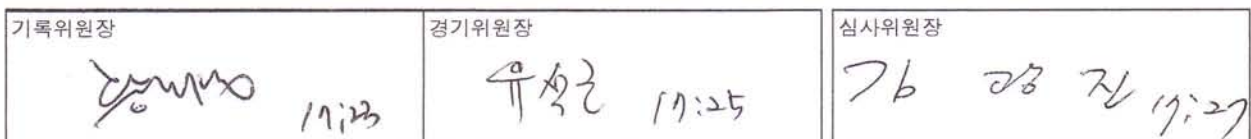 기록위원장
17:23
경기위원장
유석근 17:25
심사위원장
김 광 진 17:27